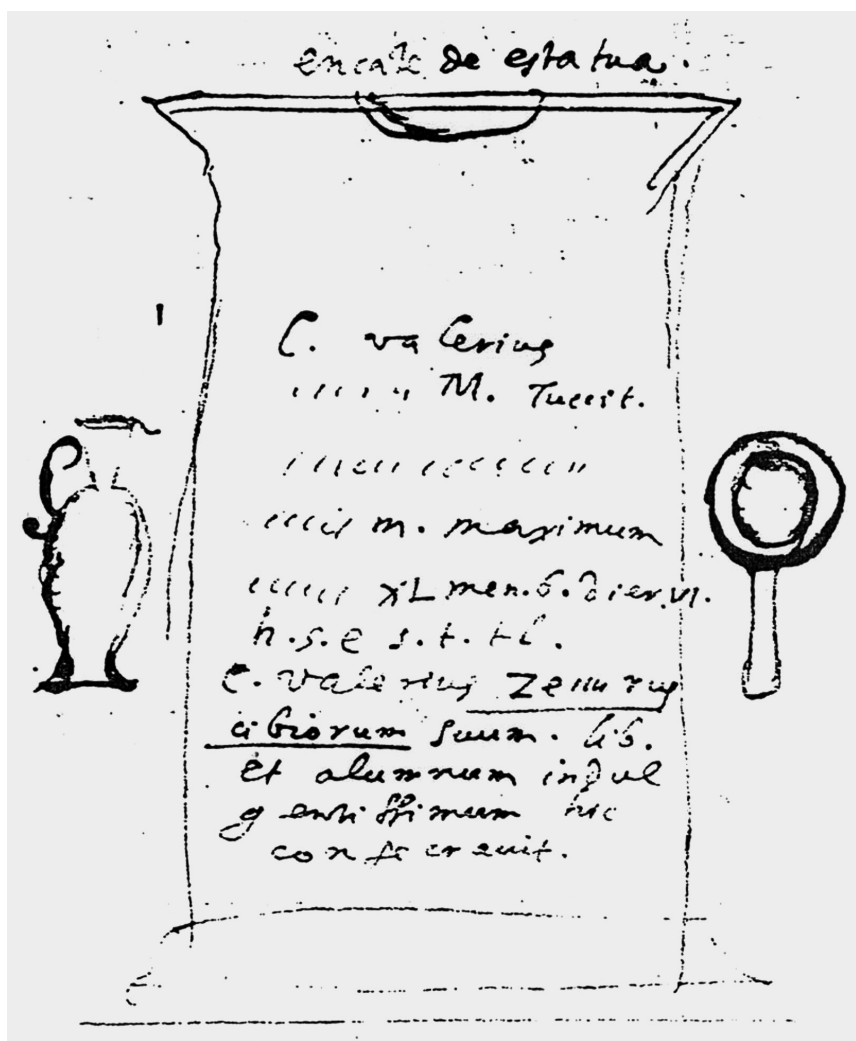 encale de estatua.
C. valerius
M. Tuccit.
m. maximum
XL men. 6. dier. VI.
h. s. e s. t. t l.
C. valerius zenurus
cibiorum suum. lib.
et alumnum indul
gentissimum hic
consecrauit.